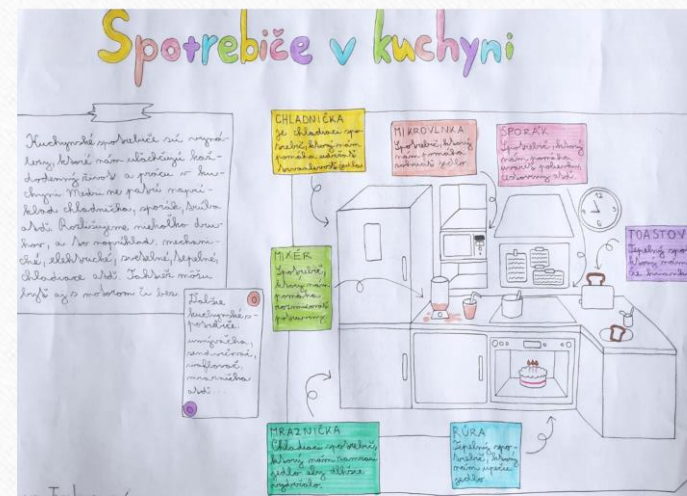 Spotrebiče v kuchyni
Kuchynské spotrebiče sú vyná-
lezy, ktoré nám uľahčujú kaž-
dodenný život a prácu v ku-
chyni. Medzi ne patrí naprí-
klad chladnička, sporák,
atď. Rozlišujeme niekoľko dru-
hov, a to napríklad, mechani-
cké, elektrické, svetelné, tepelné,
chladiace atď. Taktiež môžu
byť aj s motorom či bez.
Ďalšie
kuchynské s-
potrebiče
umývačka,
sendvičovač,
vaflovač,
mraznička
atď...
CHLADNIČKA
je chladiaci spo-
trebič, ktorý nám
pomáha udržať
jedla
MIKROVLNKA
Spotrebič, ktorý
nám pomáha
zohriať jedlo.
ŠPORÁK
Spotrebič, ktorý
nám pomáha
uvariť polievku,
cestoviny atď.
12
3
6
9
TOASTOV
Tepelný spo
ktorý nám
če hrianky
MIXÉR
Spotrebič,
ktorý nám
pomáha
rozmixovať
potraviny.
MRAZNIČKA
Chladiaci spotrebič,
ktorý nám zamrazí
jedlo aby dlhšie
vydržalo.
RÚRA
Tepelný spo-
trebič, ktorý
nám upečie
jedlo.